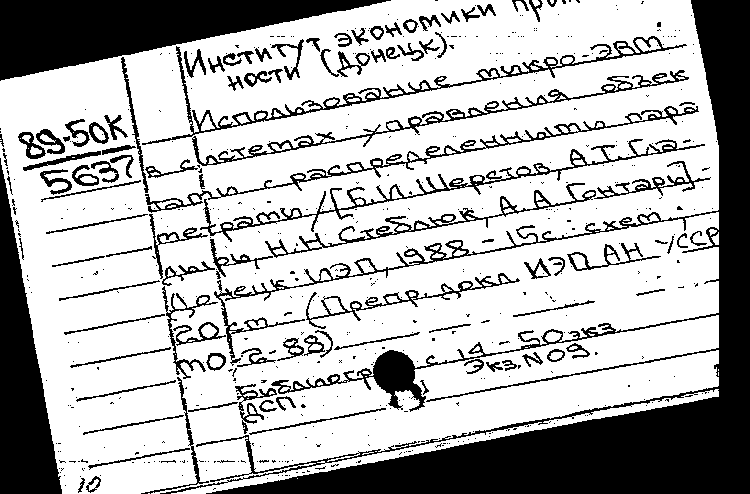 Институт экономики пром
ности (Донецк).
Использование микро-ЭВМ
89-50К
5637
в системах управления объек
тами с распределенными пара
метрами / [Б.И. Шерстов, А.Т. Гла-
дырь, Н.Н. Стеблюк, А.А. Гонтарь].-
Донецк: ИЭП, 1988. - 15с.: схем.;
20 см. - (Препр. докл. ИЭП АН УССР
Библиогр с 14 - 50 экз
ДСП. Экз. №09.
10